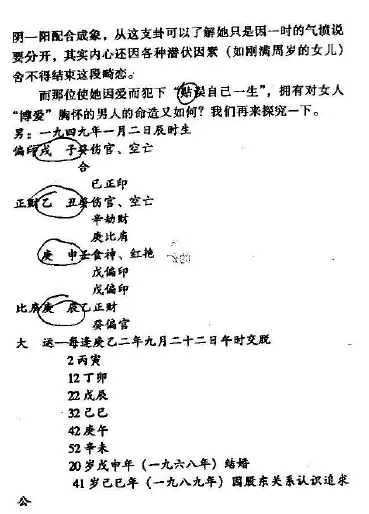 阴一阳配合成象,从这支卦可以了解她只是因一时的气愤说
要分开,其实内心还因各种潜伏因素(如刚满周岁的女儿)
舍不得结束这段畸恋。
而那位使她因爱而犯下“贻误自己一生”,拥有对女人
“博爱”胸怀的男人的命造又如何?我们再来探究一下。
男:一九四九年一月二日辰时生
偏印戌 子癸伤官、空亡
合
己正印
正财乙 丑癸伤官、空亡
辛劫财
庚比肩
庚 申壬食神、红艳
戊偏印
戊偏印
比肩庚 辰乙正财
癸偏官
大 运—每逢庚乙二年九月二十二日午时交脱
2丙寅
12丁卯
22戊辰
32己巳
42庚午
52辛未
20岁戊申年(一九六八年)结婚
41岁己巳年(一九八九年)因股东关系认识追求
公